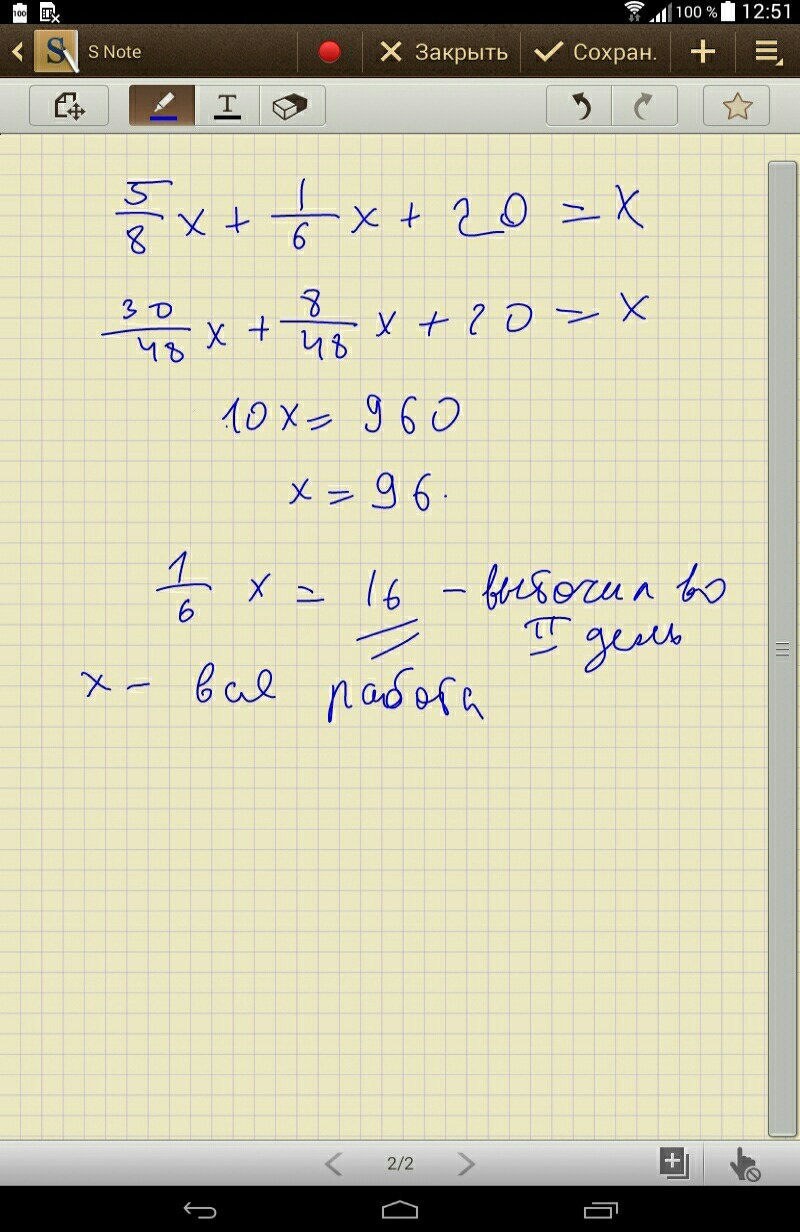 100 100 % 12:51
S Note Закрыть Сохран.
T
5/8 x + 1/6 x + 20 = x
30/48 x + 8/48 x + 20 = x
10x = 960
x = 96.
1/6 x = 16 – выточил во
II день
x – вся работа
2/2